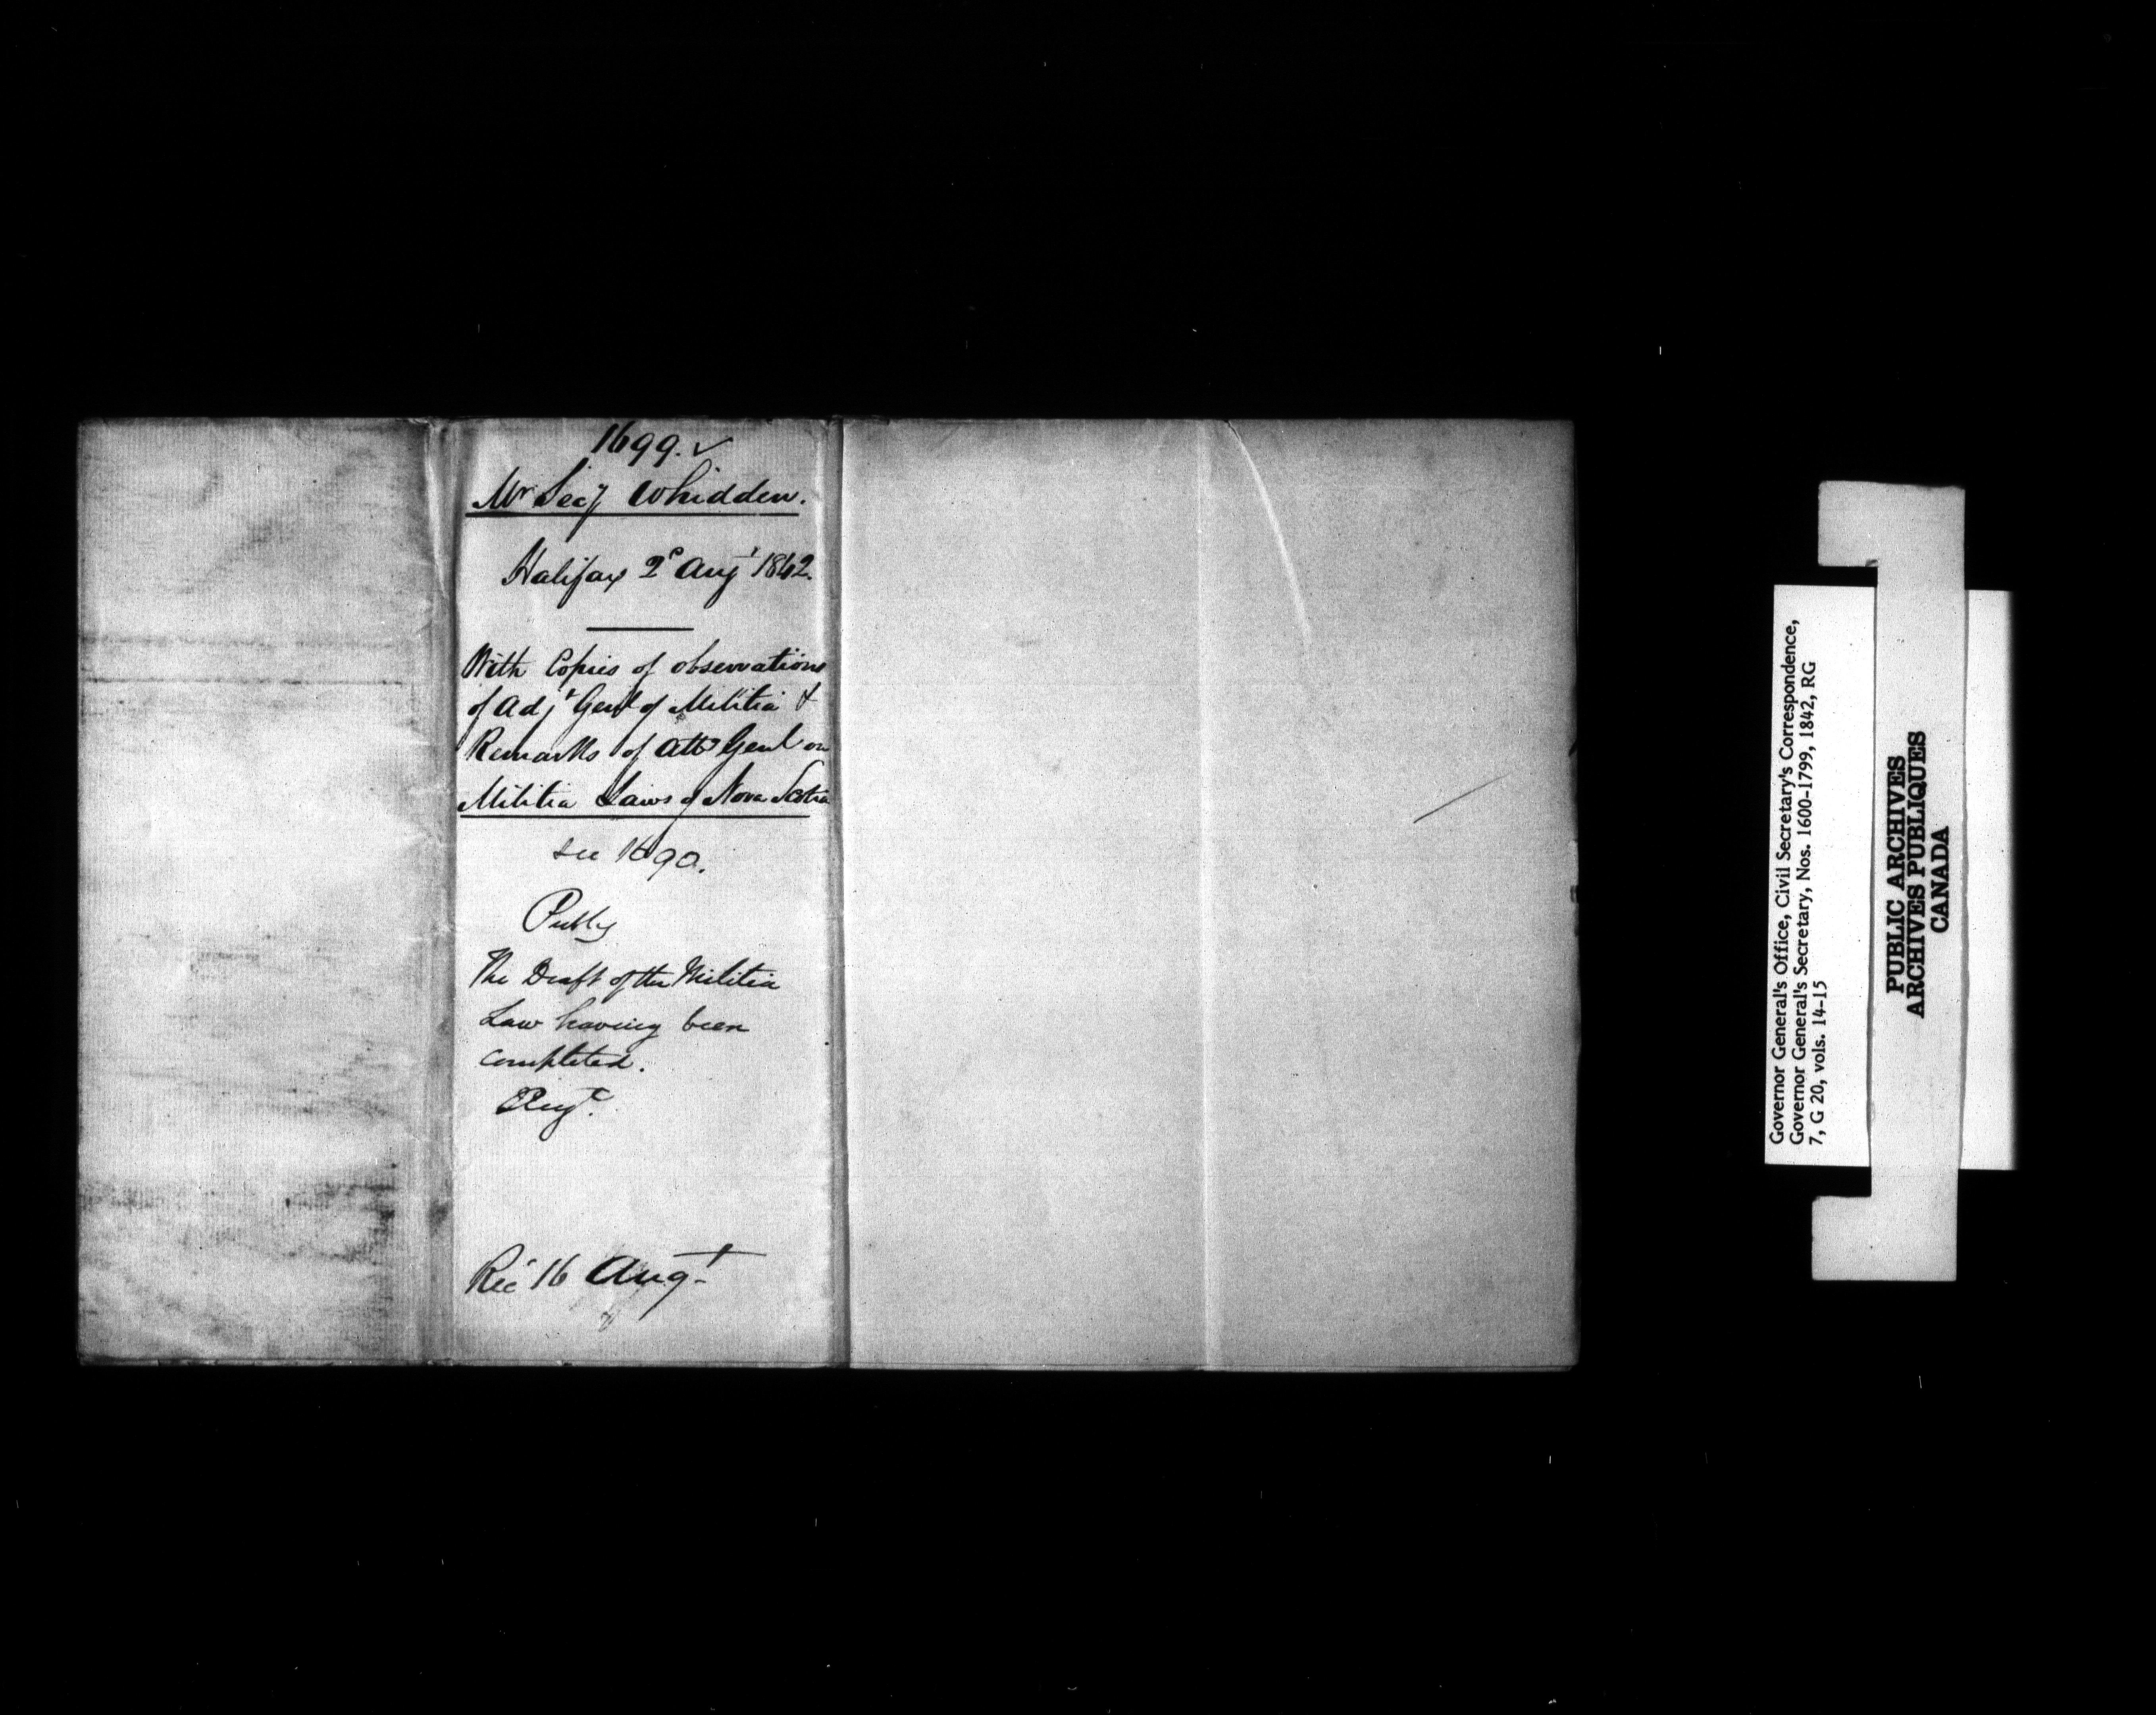 1699. ✓
Mr Secy Whidden.
Halifax 2d Augt 1842.
With Copies of observations
of Adjt Genl of Militia &
Remarks of Atty Genl on
Militia Laws of Nova Scotia
see 1690.
The Draft of the Militia
Law having been
completed.
Recd 16 Augt
Governor General's Office, Civil Secretary's Correspondence,
Governor General's Secretary, Nos. 1600-1799, 1842, RG
7, G 20, vols. 14-15
PUBLIC ARCHIVES
ARCHIVES PUBLIQUES
CANADA